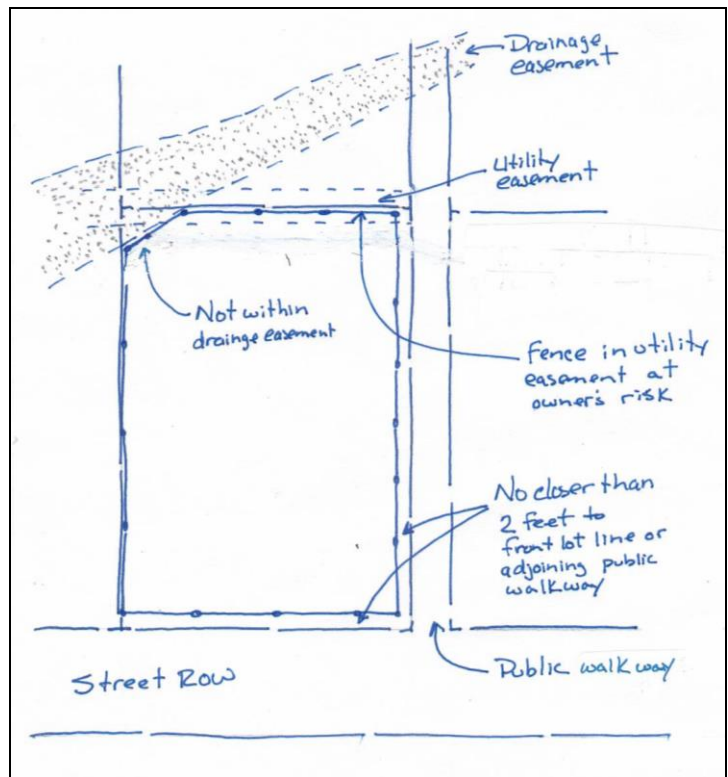 Drainage
easement
Utility
easement
Not within
drainge easement
Fence in utility
easement at
owner's risk
No closer than
2 feet to
front lot line or
adjoining public
walkway
Public walkway
Street Row